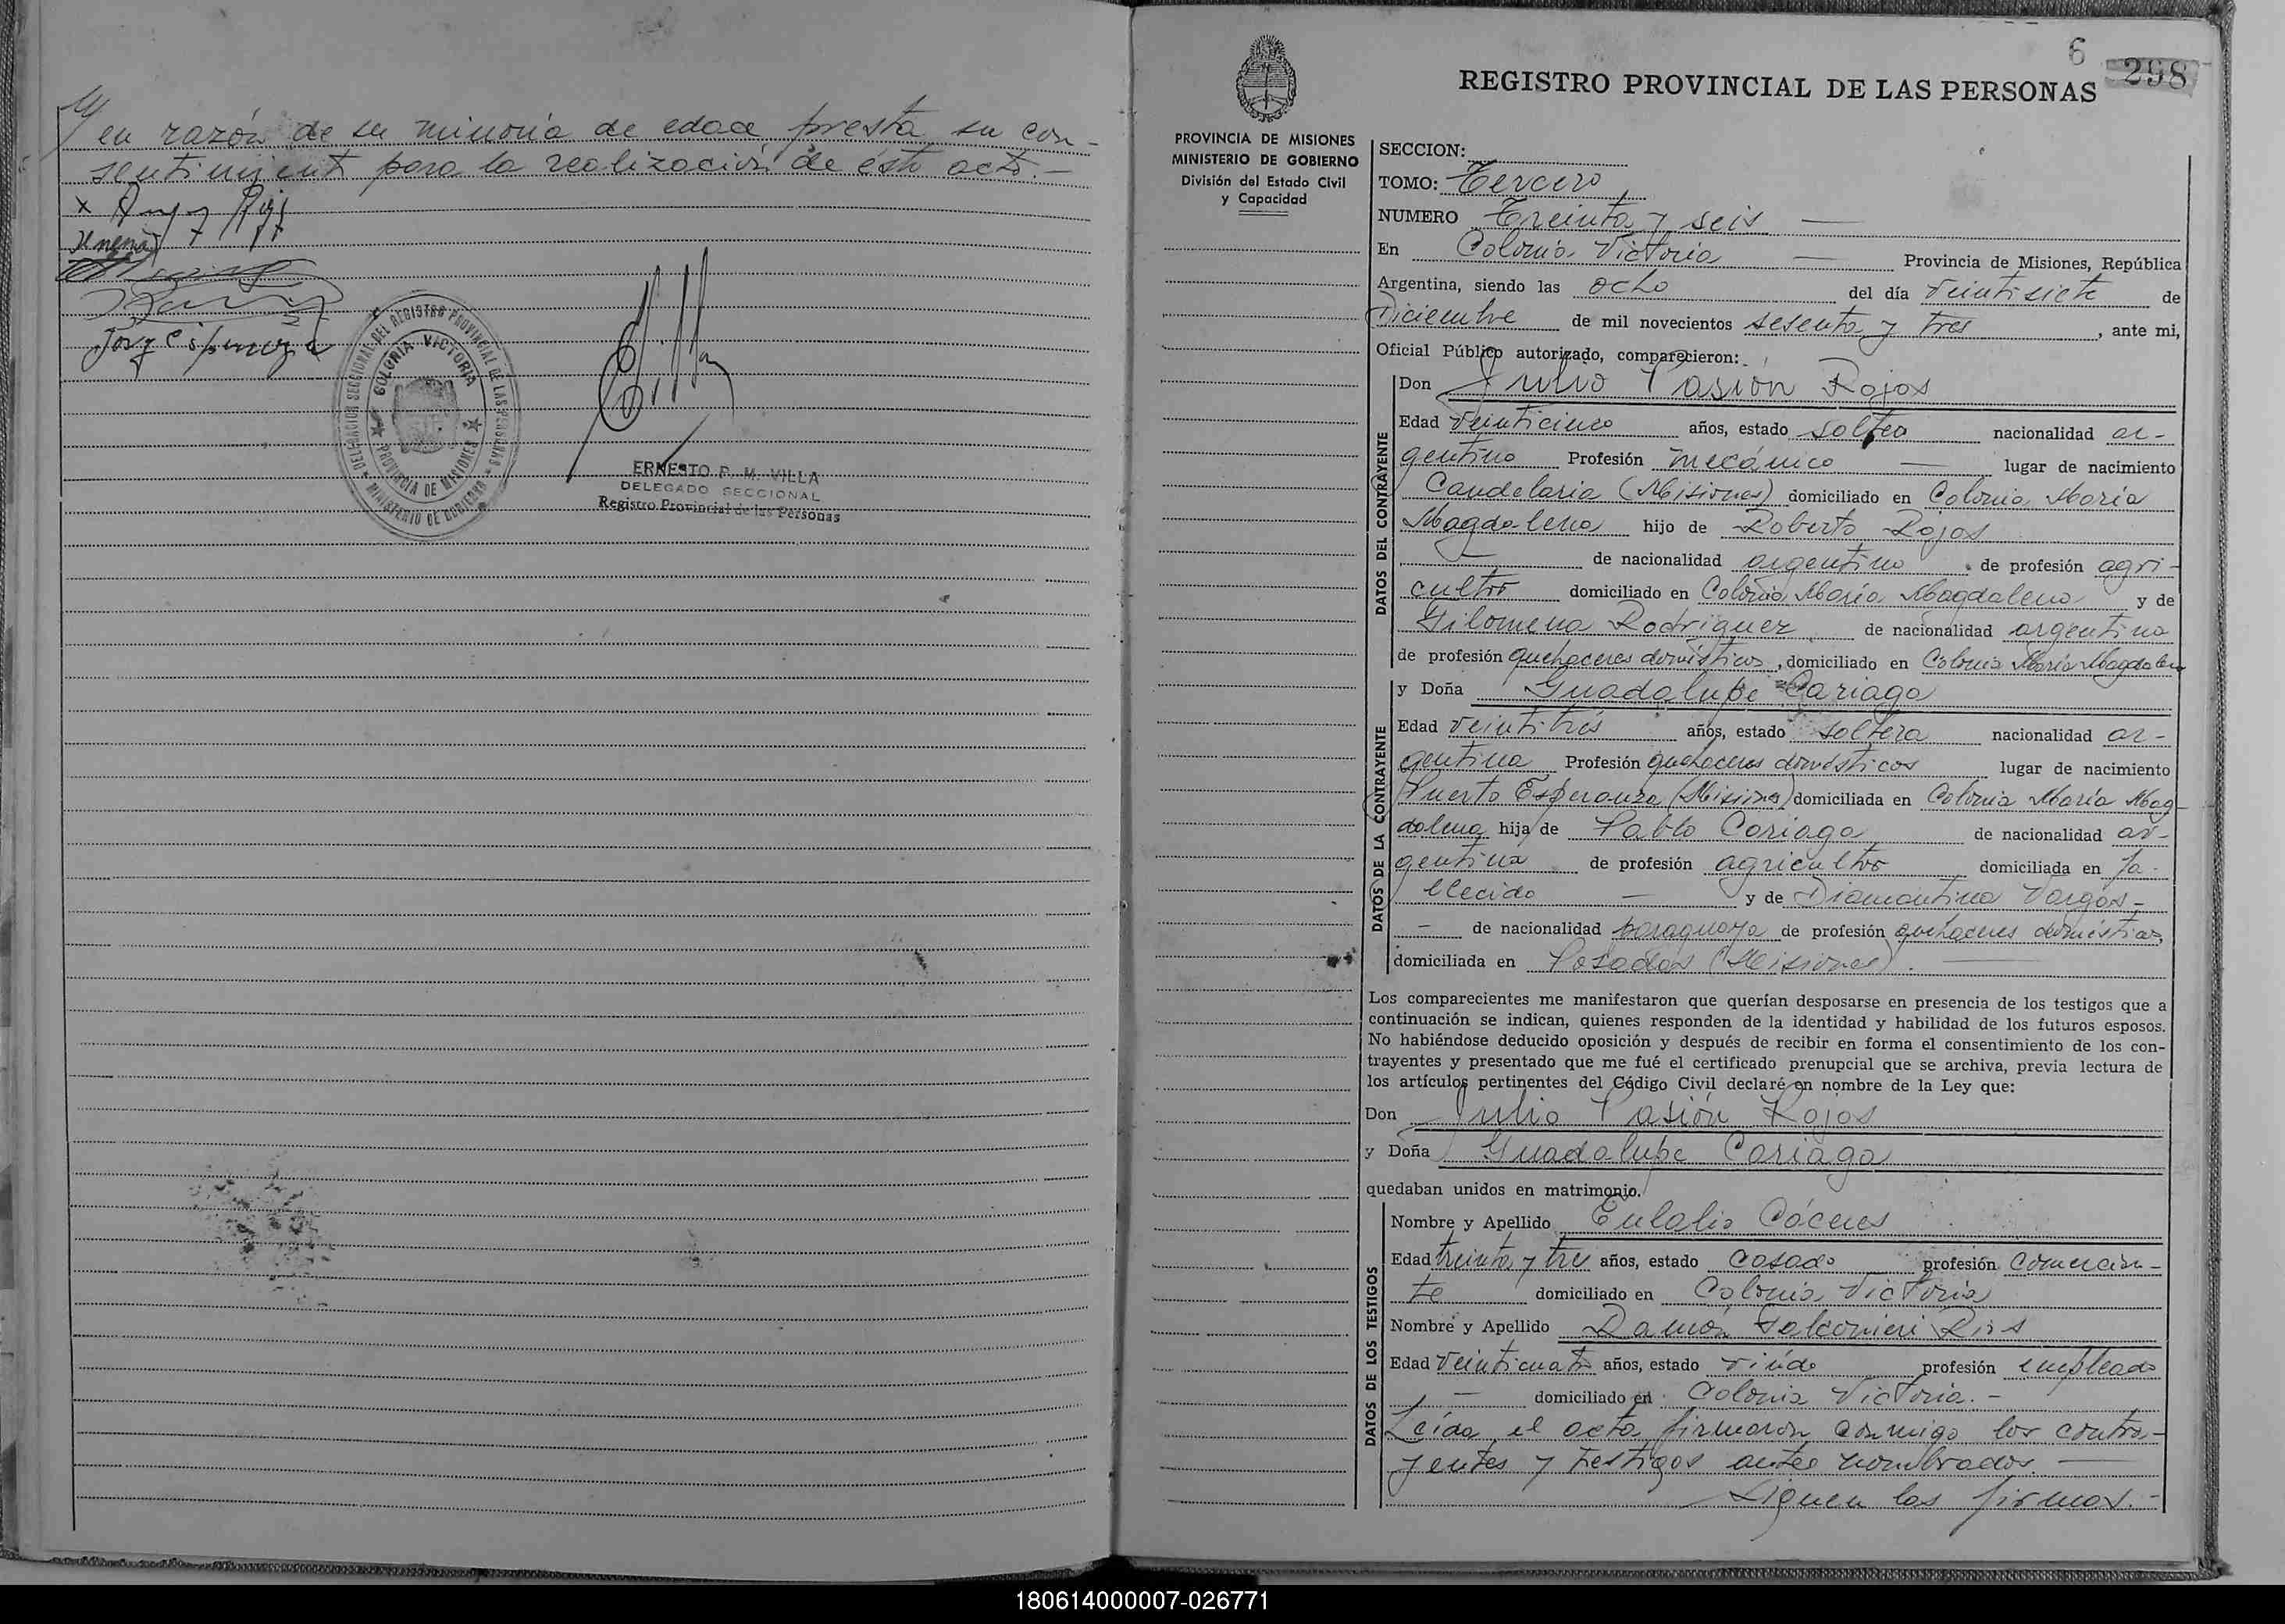 en razón de su minoría de edad presta su con-
sentimiento para la realización de este acto.-
ERNESTO P. M. VILLA
DELEGADO SECCIONAL
Registro Provincial de las Personas
DELEGACION SECCIONAL DEL REGISTRO PROVINCIAL DE LAS PERSONAS
MINISTERIO DE GOBIERNO
COLONIA VICTORIA
PROVINCIA DE MISIONES
6
298
REGISTRO PROVINCIAL DE LAS PERSONAS
PROVINCIA DE MISIONES
MINISTERIO DE GOBIERNO
División del Estado Civil
y Capacidad
SECCION:
TOMO: Tercero
NUMERO Treinta y seis —
En Colonia Victoria — Provincia de Misiones, República
Argentina, siendo las ocho del día veintisiete de
Diciembre de mil novecientos sesenta y tres, ante mi,
Oficial Público autorizado, comparecieron:
DATOS DEL CONTRAYENTE
Don Julio Pasión Rojas
Edad veinticinco años, estado soltero nacionalidad ar-
gentino Profesión mecánico — lugar de nacimiento
Candelaria (Misiones) domiciliado en Colonia María
Magdalena hijo de Roberto Rojas
— de nacionalidad argentino de profesión agri-
cultor domiciliado en Colonia María Magdalena y de
Filomena Rodriguez de nacionalidad argentina
de profesión quehaceres domésticos, domiciliado en Colonia María Magdalena
DATOS DE LA CONTRAYENTE
y Doña Guadalupe Cariaga
Edad veintitrés años, estado soltera nacionalidad ar-
gentina Profesión quehaceres domésticos lugar de nacimiento
Puerto Esperanza (Misiones) domiciliada en Colonia María Mag-
dalena hija de Pablo Cariaga de nacionalidad ar-
gentina de profesión agricultor domiciliada en fa-
llecido — y de Diamantina Vargas -
— de nacionalidad paraguaya de profesión quehaceres domésticos,
domiciliada en Posadas (Misiones). —
Los comparecientes me manifestaron que querían desposarse en presencia de los testigos que a
continuación se indican, quienes responden de la identidad y habilidad de los futuros esposos.
No habiéndose deducido oposición y después de recibir en forma el consentimiento de los con-
trayentes y presentado que me fué el certificado prenupcial que se archiva, previa lectura de
los artículos pertinentes del Código Civil declaré en nombre de la Ley que:
Don Julio Pasión Rojas
y Doña Guadalupe Cariaga
quedaban unidos en matrimonio.
DATOS DE LOS TESTIGOS
Nombre y Apellido Eulalio Cáceres
Edad treinta y tres años, estado casado profesión comercian-
te domiciliado en Colonia Victoria
Nombre y Apellido Ramón Falconieri Ríos
Edad veinticuatro años, estado viudo profesión empleado
— domiciliado en Colonia Victoria.-
Leída el acta firmaron conmigo los contra-
yentes y testigos antes nombrados. —
Siguen las firmas.-
180614000007-026771